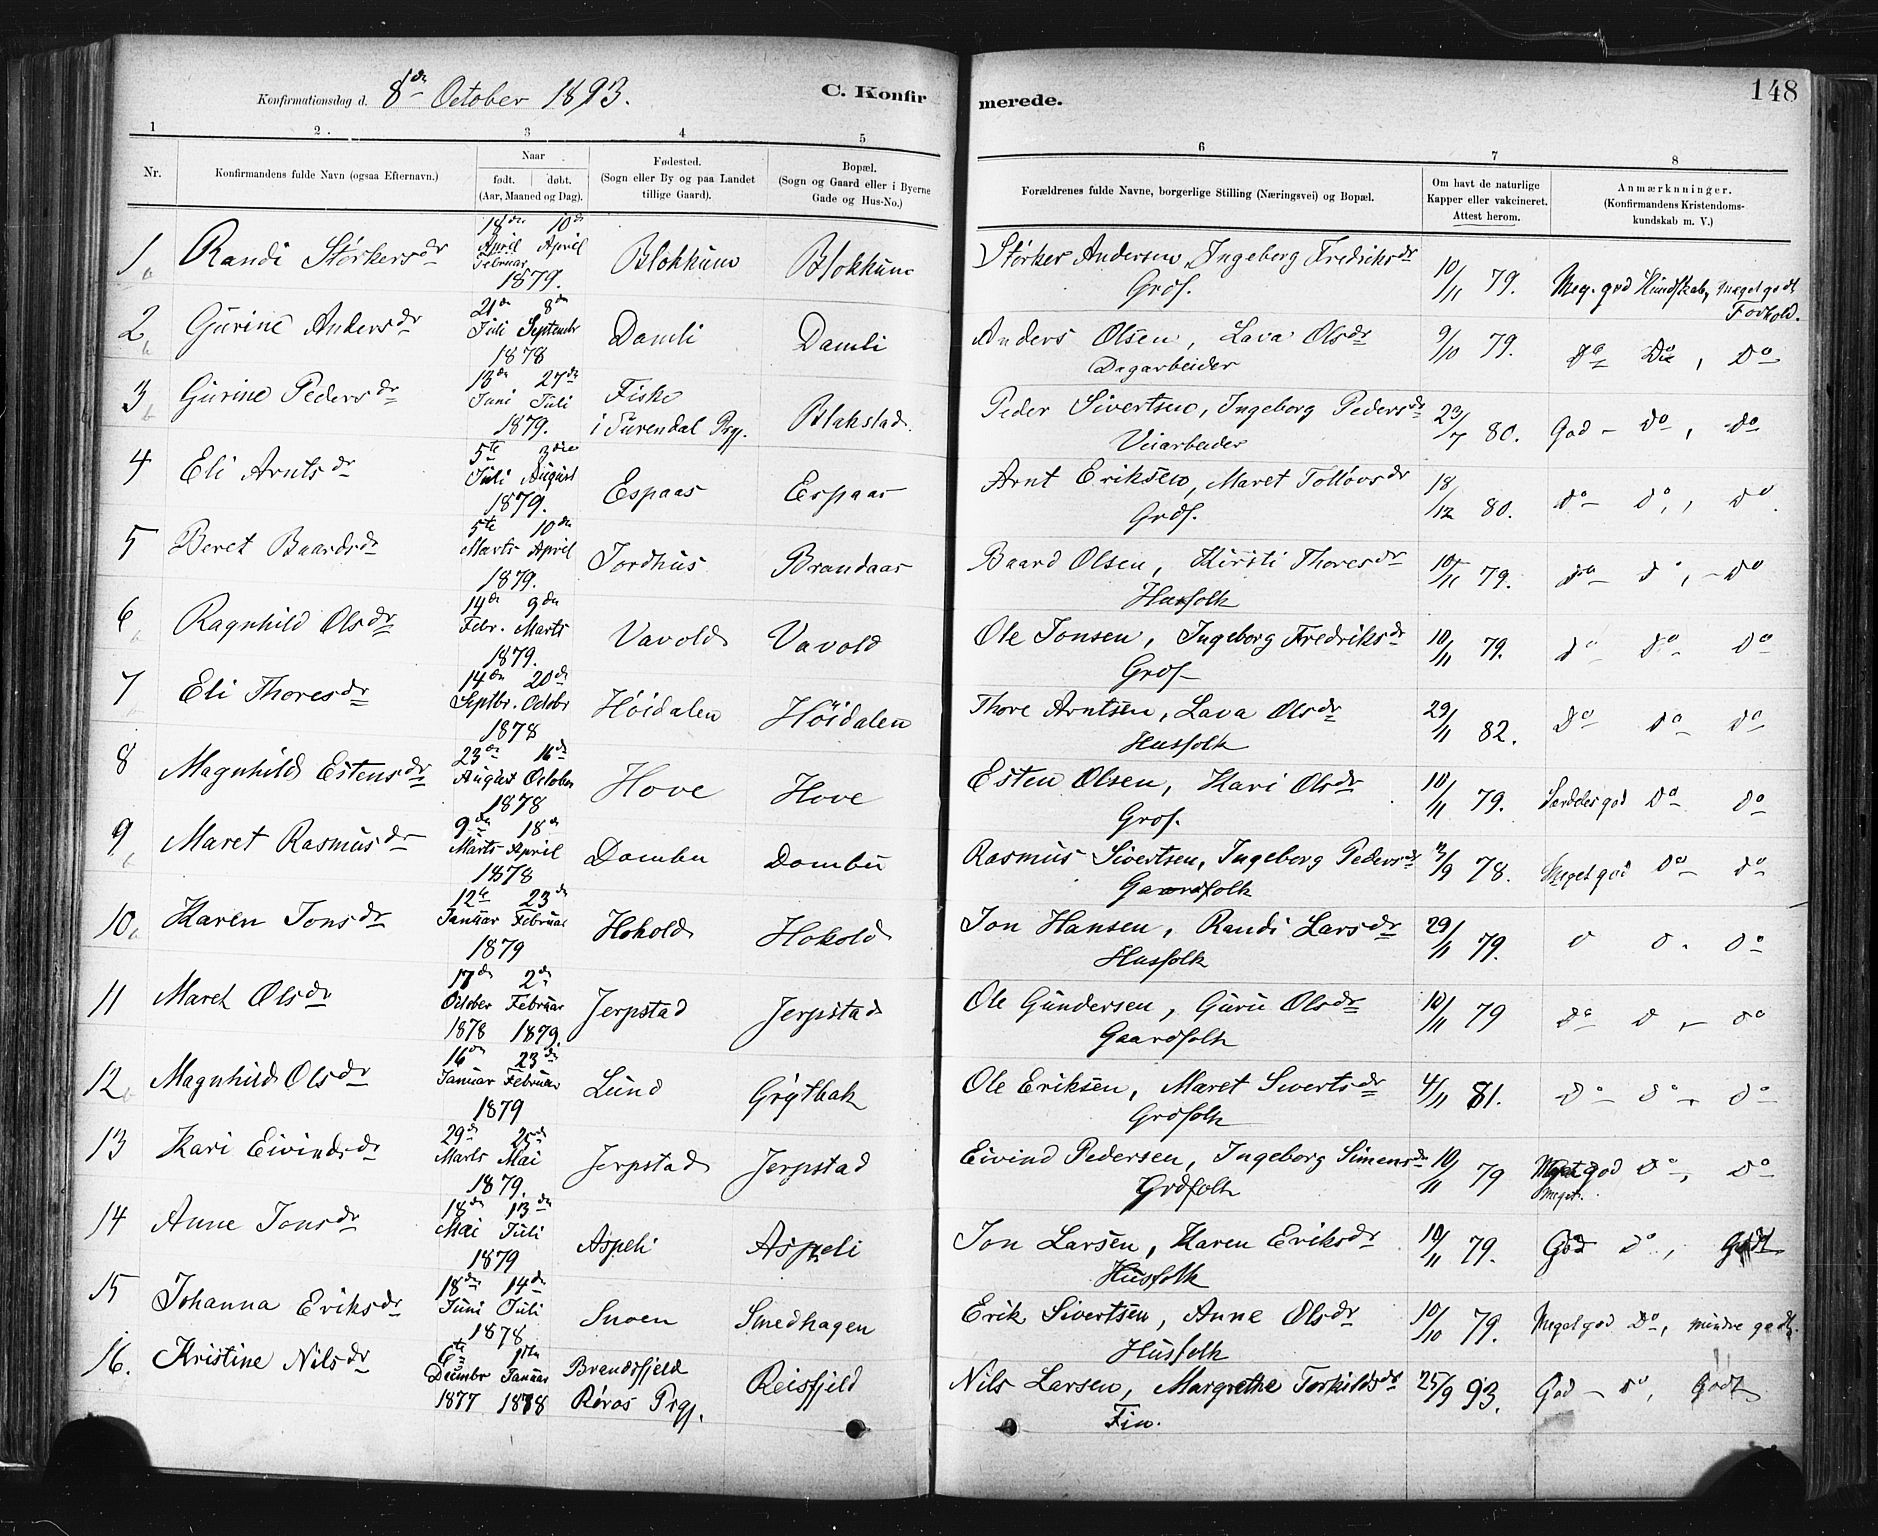 Konfirmationsdag d. 8de October 1893. C. Konfirmerede. 148
1 2. 3 4 5 6 7 8
Nr. Konfirmandens fulde Navn (ogsaa Efternavn.) Naar født. døbt. (Aar, Maaned og Dag). Fødested. (Sogn eller By og paa Landet tillige Gaard). Bopæl. (Sogn og Gaard eller i Byerne Gade og Hus-No.) Forældrenes fulde Navne, borgerlige Stilling (Næringsvei) og Bopæl. Om havt de naturlige Kapper eller vakcineret. Attest herom. Anmærkninger. (Konfirmandens Kristendoms-kundskab m. V.)
1 Randi Størkersdr April Februar 10de April 1879. Blokkum Blokkum Størker Andersen, Ingeborg Fredriksdr Grdf. 10/11 79. Meg. god Kundskab, meget godt Forhold.
2 Gurine Andersdr 21de Juli 8de Septembr 1878 Damli Damli Anders Olsen, Lava Olsdr Dagarbeider 9/10 79. Do Do, Do
3 Gurine Pedersdr 13de Juni 27de Juli 1879. Fiske i Surendal Prgj. Blakstad. Peder Sivertsen, Ingeborg Pedersdr Veiarbeider 23/7 80. God - do, do
4 Eli Arntsdr 5te Juli 3die August 1879. Espaas Espaas Arnt Eriksen, Maret Tolløvsdr Grdf. 18/12 80. do do, do
5 Beret Baardsdr 5te Marts 10de April 1879. Jordhus Brandaas Baard Olsen, Kirsti Thoresdr Husfolk 10/11 79. do d, do
6 Ragnhild Olsdr 14de Febr. 9de Marts 1879. Vavold Vavold Ole Jonsen, Ingeborg Fredriksdr Grdf. 10/11 79. do do do
7 Eli Thoresdr 14de Septbr. 20de Octobr 1878 Høidalen Høidalen Thore Arntsen, Lava Olsdr Husfolk 29/11 82. Do do do
8 Magnhild Estensdr 23de August 16de October 1878 Hove Hove Esten Olsen, Kari Olsdr Grdf. 10/11 79. Særdeles god Do do
9 Maret Rasmusdr 9de Marts 18de April 1878 Dombu Dombu Rasmus Sivertsen, Ingeborg Pedersdr Gaardfolk 78. Meget god do do
10 Karen Jonsdr 12te Januar 23de Februar 1879 Hokold Hokold Jon Hansen, Randi Larsdr Husfolk 29/11 79. d d. do
11 Maret Olsdr 17de October 1878 2de Februar 1879. Jerpstad Jerpstad Ole Gundersen, Guru Olsdr Gaardfolk 10/11 79 do d, do
12 Magnhild Olsdr 16de Januar 23de Februar 1879 Lund Grytbak Ole Eriksen, Maret Sivertsdr Grdfolk 4/11 81. do do do
13 Kari Eivindsdr 29de Marts 25de Mai 1879. Jerpstad Jerpstad Eivind Pedersen, Ingeborg Simensdr Grdfolk 10/11 79 Meget god do, do
Meget.
14 Anne Jonsdr 18de Mai 13de Juli 1879 Aspeli Aspeli Jon Larsen, Karen Eriksdr Husfolk 10/11 79. God do, Godt
15 Johanna Eriksdr 18de Juni 14de Juli 1878. Snoen Smedhagen Erik Sivertsen, Anne Olsdr Husfolk 10/10 79. Meget god Do, mindre godt.
16. Kristine Nilsdr 6te Decembr 1877 Januar 1878 Brendsfjeld Røros Prgj. Reisfjeld Nils Larsen, Margrethe Torkildsdt Fin. 25/9 93. God - do, Godt